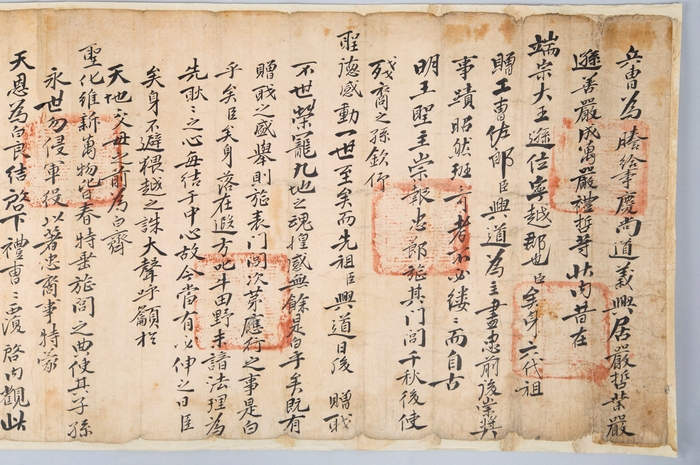 兵曹爲謄給事慶尚道義興居嚴哲業嚴
遜善嚴成萬嚴禮哲等狀內昔在
端宗大王遜位寧越郡也臣矣身六代祖
贈工曹佐郎臣興道爲主盡忠前後崇獎
事蹟昭然班可考者不必縷縷而自古
明王聖主崇報忠節旌其門閭千秋後使
殘裔之孫欽行
聖德感動一世至矣而先祖臣興道日後 贈職
不世榮寵九地之魂惶惑無餘是白乎矣既有
贈職之盛舉則旌表門閭次第應行之事是白
乎矣臣矣身落在遐方叱牛田野未諳法理爲
先耿耿之心每結于中心故今當有必伸之日臣
矣身不避猥越之誅大聲呼籲於
天地父母之前爲白齊
聖化維新萬物皆春特垂旌閭之典使其子孫
永世勿侵軍役以著忠裔事特蒙
天恩爲白良結啓下禮曹禮曹覆啓內觀此